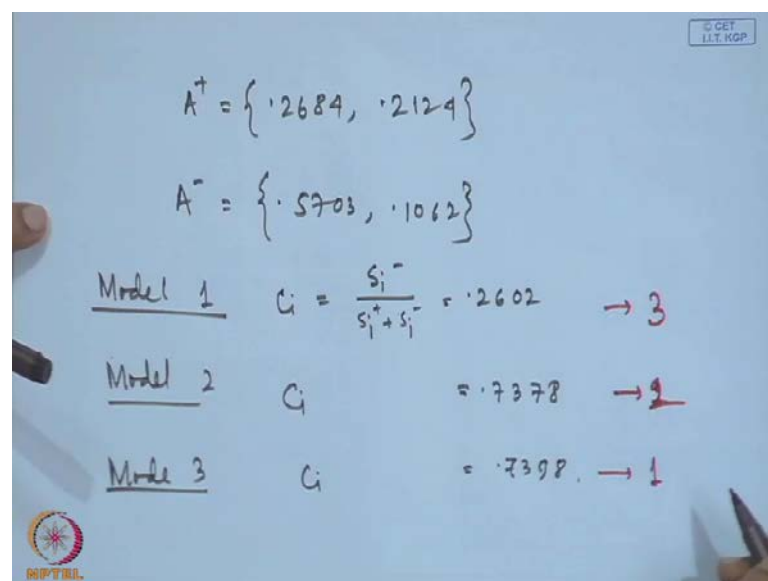 © CET
I.I.T. KGP
A⁺ = {.2684, .2124}
A⁻ = {.5703, .1062}
Model 1 Ci = Si⁻ / Si⁺ + Si⁻ = .2602 → 3
Model 2 Ci = .7378 → 2
Mode 3 Ci = .7398. → 1
NPTEL